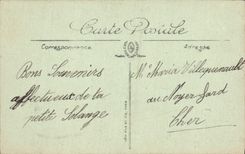 Carte Postale
Correspondance
Adresse
Bons Souvenirs
affectueux de la
petite Solange
Me Maria Villepenault
au Noyer Gard
Cher